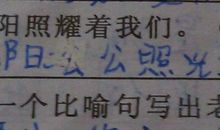 阳照耀着我们。
阳公公照光
一个比喻句写出